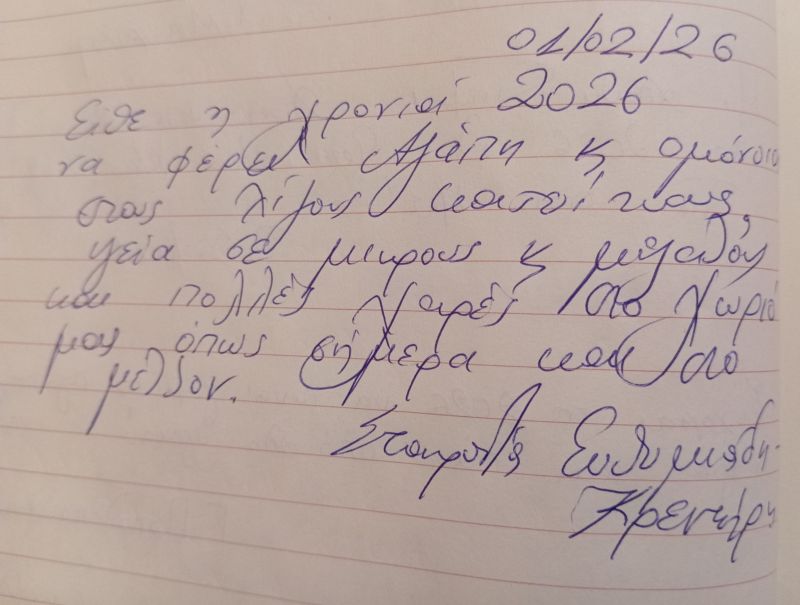 01/02/26
Είθε η χρονιά 2026
να φέρει Αγάπη κ ομόνοια
στους λίγους κατοίκους,
υγεία σε μικρους κ μεγάλους
και πολλές χαρές στο χωριό
μας όπως σήμερα και στο
μέλλον.
Ευθυμιάδη-